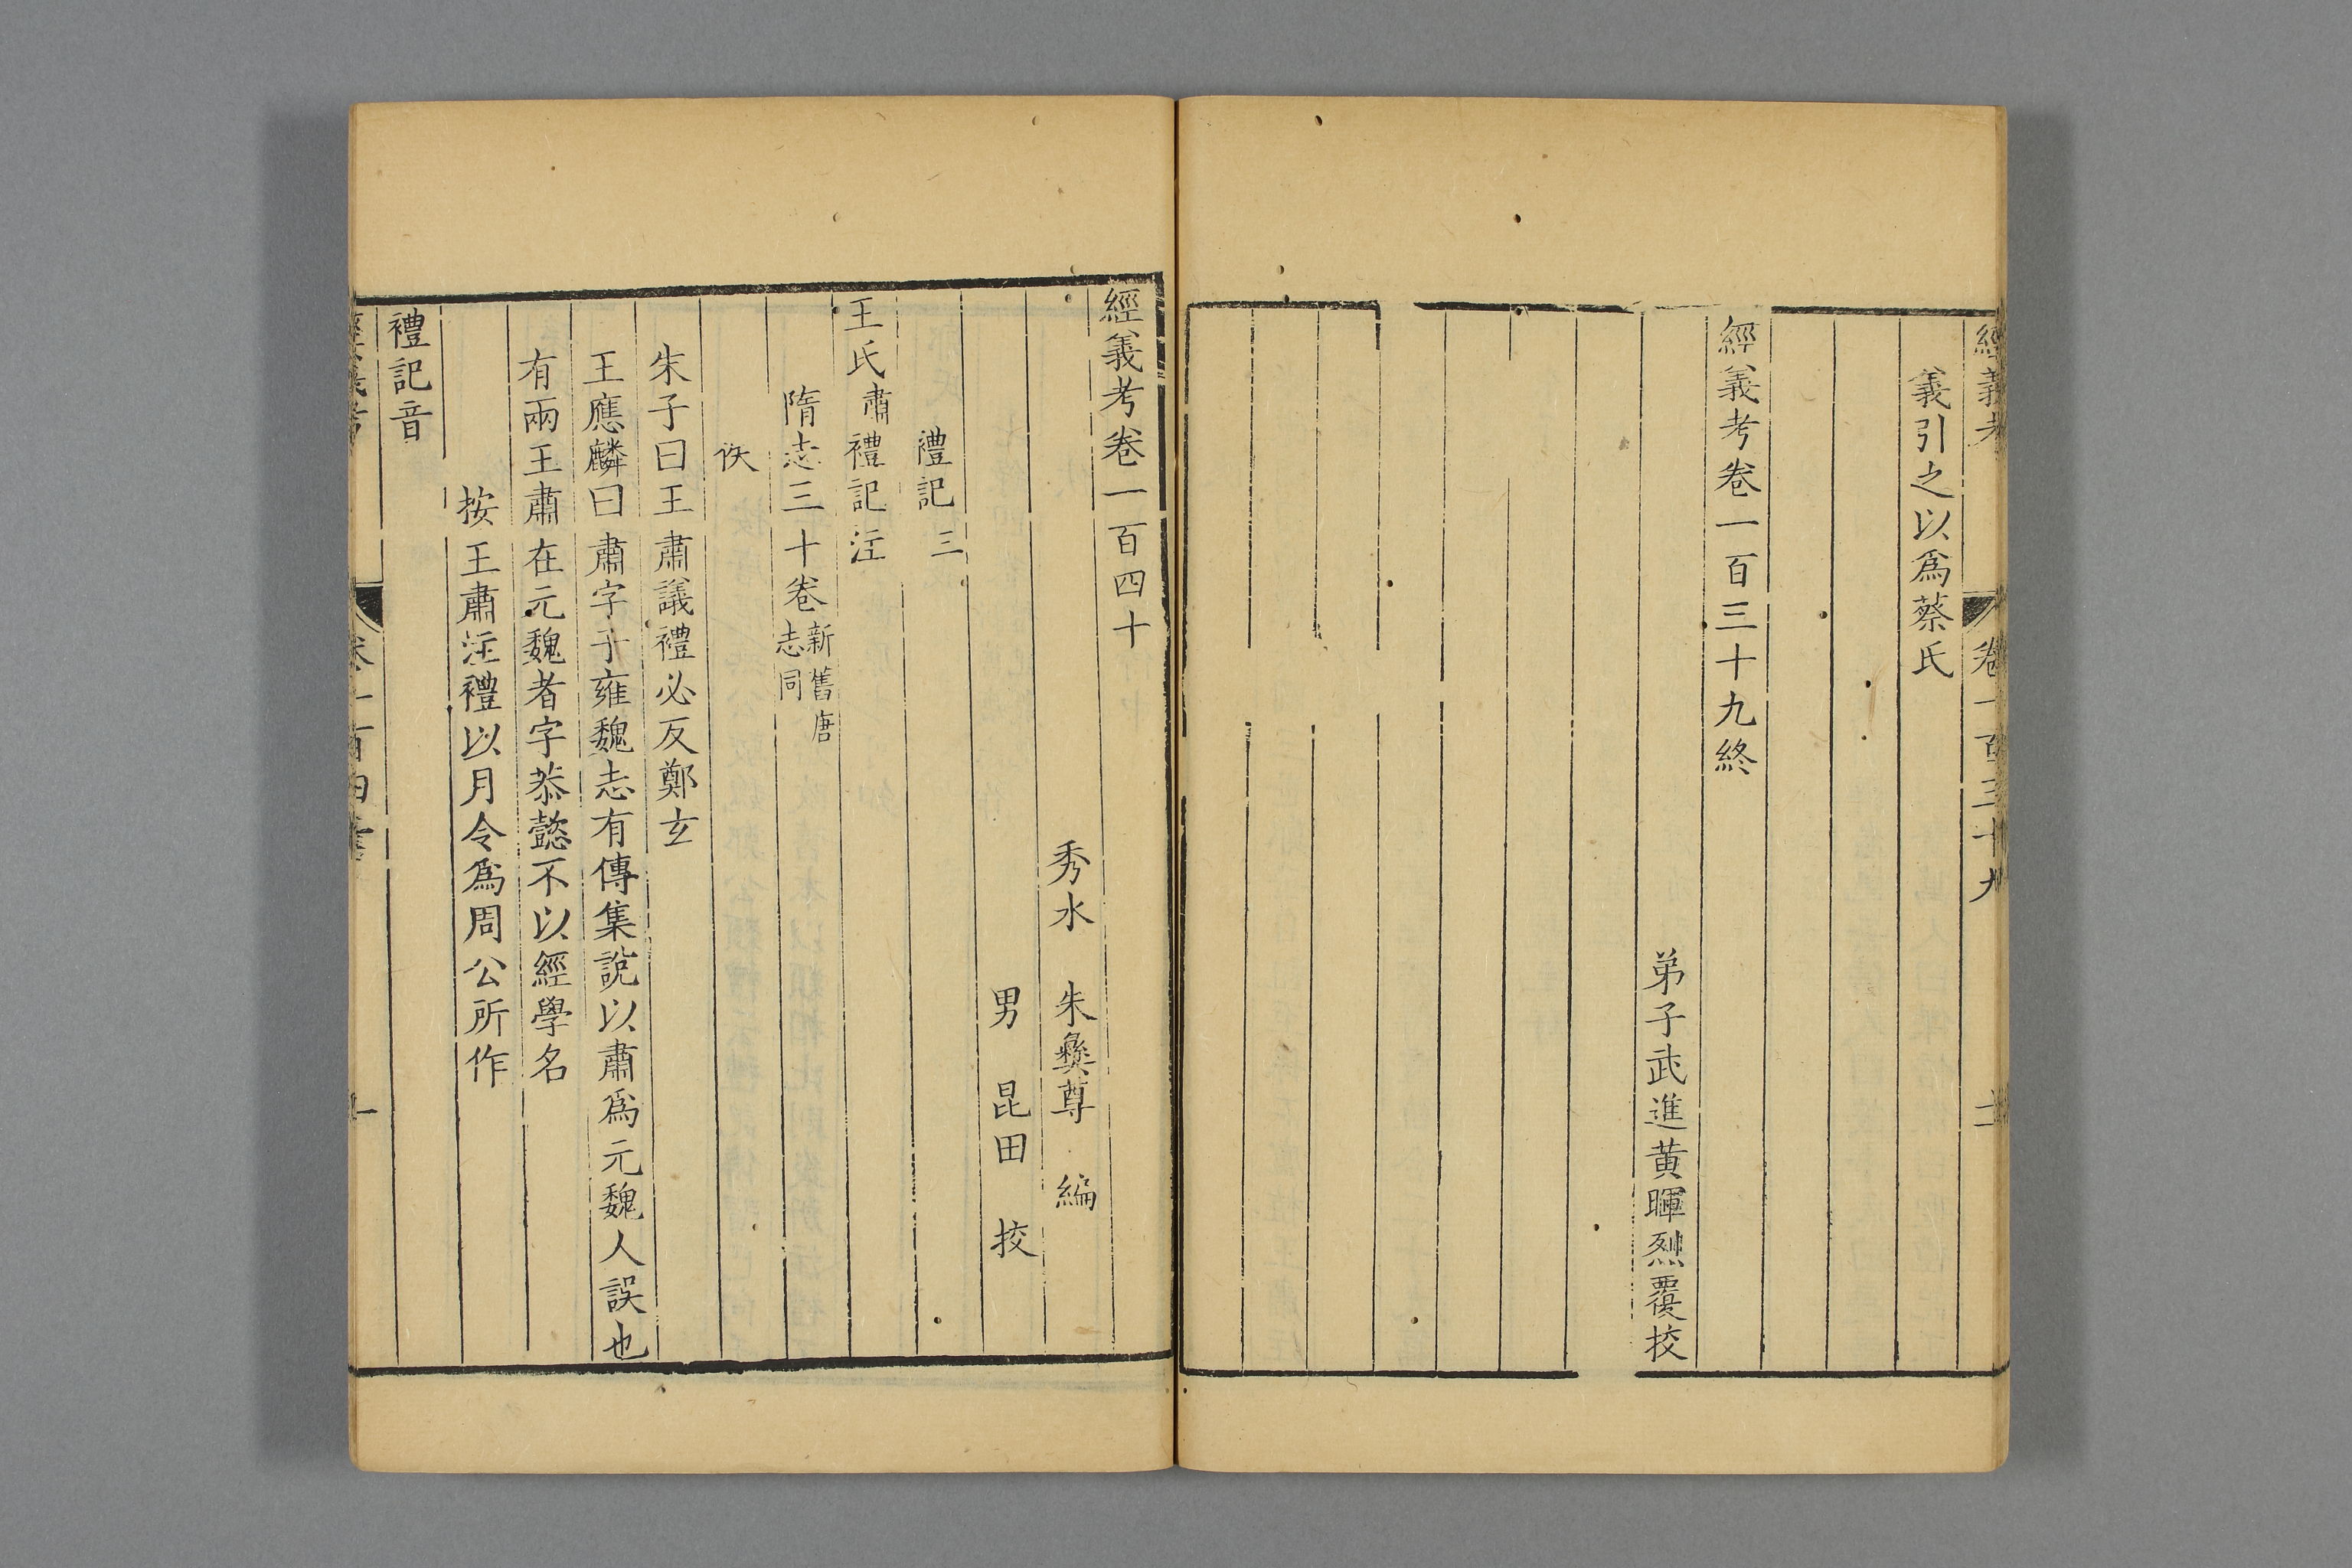 經義考 卷一百三十九
義引之以爲蔡氏
經義考卷一百三十九終
弟子武進黃暉烈覆挍
經義考卷一百四十
秀水 朱彝尊 編
男 昆田 挍
禮記三
王氏肅禮記注
隋志三十卷新舊唐志同
佚
朱子曰王肅議禮必反鄭玄
王應麟曰肅字子雍魏志有傳集說以肅爲元魏人誤也
有兩王肅在元魏者字恭懿不以經學名
按王肅注禮以月令爲周公所作
禮記音
經義考 卷一百四十 一